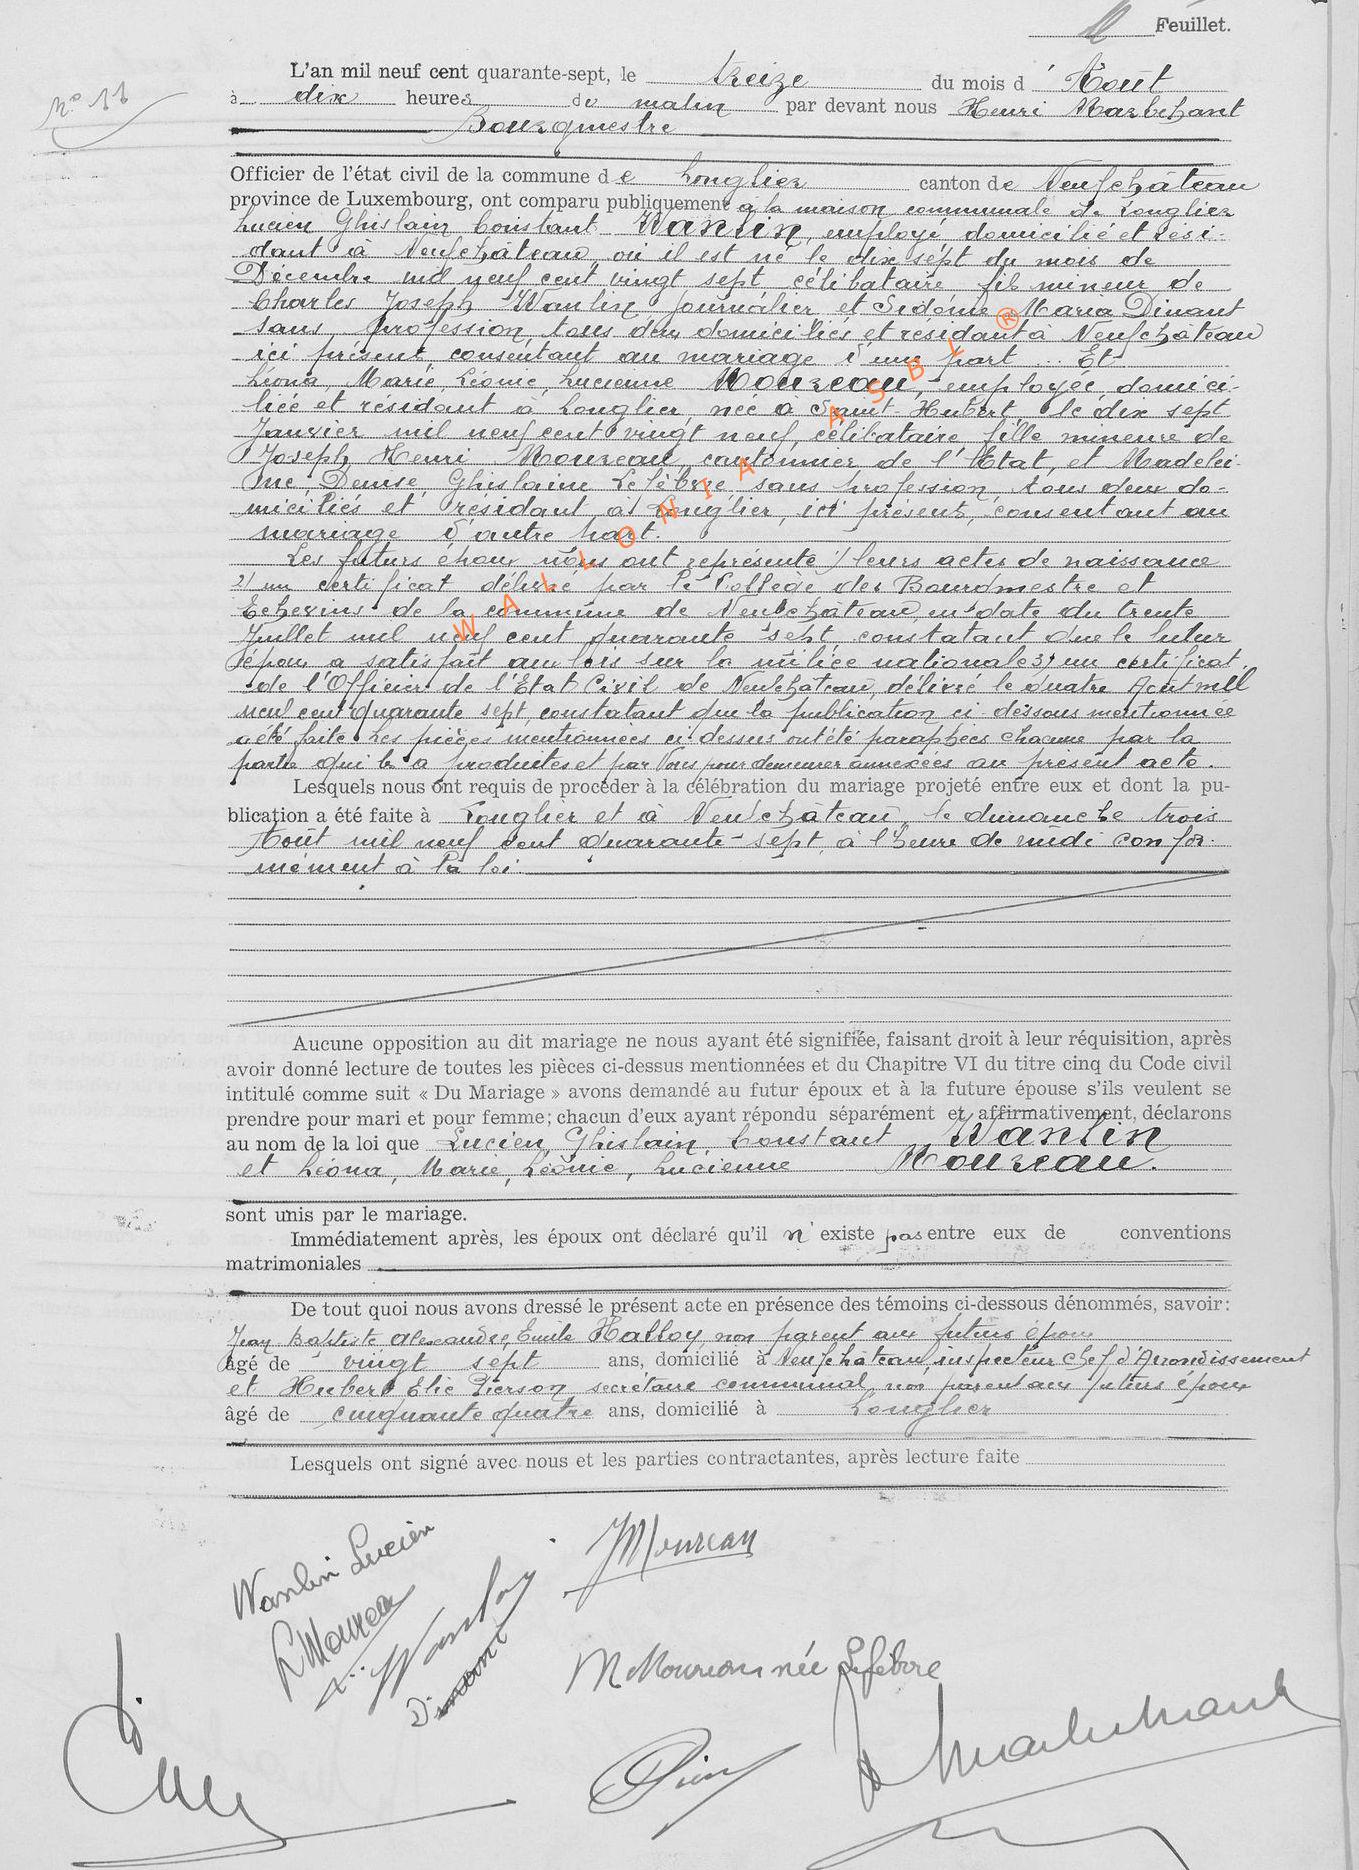 11 Feuillet.
N° 11
L'an mil neuf cent quarante-sept, le treize du mois d' Août
à dix heures du matin par devant nous Henri Marbehant
Bourgmestre
Officier de l'état civil de la commune de Longlier canton de Neufchâteau
province de Luxembourg, ont comparu publiquement à la maison communale de Longlier
Lucien Ghislain Constant Wanlin, employé, domicilié et rési-
dant à Neufchâteau, où il est né le dix sept du mois de
Décembre mil neuf cent vingt sept célibataire fils mineur de
Charles Joseph Wanlin journalier et Sidonie Maria Dinant
sans profession, tous deux domiciliés et résidant à Neufchâteau
ici présent consentant au mariage d'une part. Et
Léona, Marie, Léonie, Lucienne Moureau, employée, domici-
liée et résidant à Longlier, née à Saint-Hubert, le dix sept
Janvier mil neuf cent vingt neuf, célibataire fille mineure de
Joseph Henri Moureau, cantonnier de l'Etat, et Madelei-
ne Denise Ghislaine Lefèbvre sans profession, tous deux do-
miciliés et résidant à Longlier, ici présents, consentant au
mariage d'autre part.
Les futurs époux nous ont représenté 1) leurs actes de naissance
2) un certificat délivré par le Collège des Bourgmestre et
Echevins de la commune de Neufchâteau, en date du trente
Juillet mil neuf cent quarante sept, constatant que le futur
époux a satisfait aux lois sur la milice nationale 3) un certificat
de l'Officier de l'Etat Civil de Neufchâteau, délivré le quatre Août mil
neuf cent quarante sept, constatant que la publication ci-dessous mentionnée
a été faite. Les pièces mentionnées ci-dessus ont été paraphées chacune par la
partie qui les a produites et par Nous pour demeurer annexées au présent acte.
Lesquels nous ont requis de procéder à la célébration du mariage projeté entre eux et dont la pu-
blication a été faite à Longlier et à Neufchâteau, le dimanche trois
Août mil neuf cent quarante-sept, à l'heure de midi confor-
mément à la loi.
Aucune opposition au dit mariage ne nous ayant été signifiée, faisant droit à leur réquisition, après
avoir donné lecture de toutes les pièces ci-dessus mentionnées et du Chapitre VI du titre cinq du Code civil
intitulé comme suit « Du Mariage » avons demandé au futur époux et à la future épouse s'ils veulent se
prendre pour mari et pour femme; chacun d'eux ayant répondu séparément et affirmativement, déclarons
au nom de la loi que Lucien, Ghislain, Constant Wanlin
et Léona, Marie, Léonie, Lucienne Moureau.
sont unis par le mariage.
Immédiatement après, les époux ont déclaré qu'il n'existe pas entre eux de conventions
matrimoniales
De tout quoi nous avons dressé le présent acte en présence des témoins ci-dessous dénommés, savoir:
Jean Baptiste Alexandre, Emile Halloy, non parent aux futurs époux
âgé de vingt sept ans, domicilié à Neufchâteau, inspecteur chef d'Arrondissement
et Hubert Elie Pierson, secrétaire communal, non parent aux futurs époux
âgé de cinquante quatre ans, domicilié à Longlier
Lesquels ont signé avec nous et les parties contractantes, après lecture faite
WALLONIA ASBL ®
Wanlin Lucien
J Moureau
L Moureau
Dinant
M Moureau née Lefèbvre